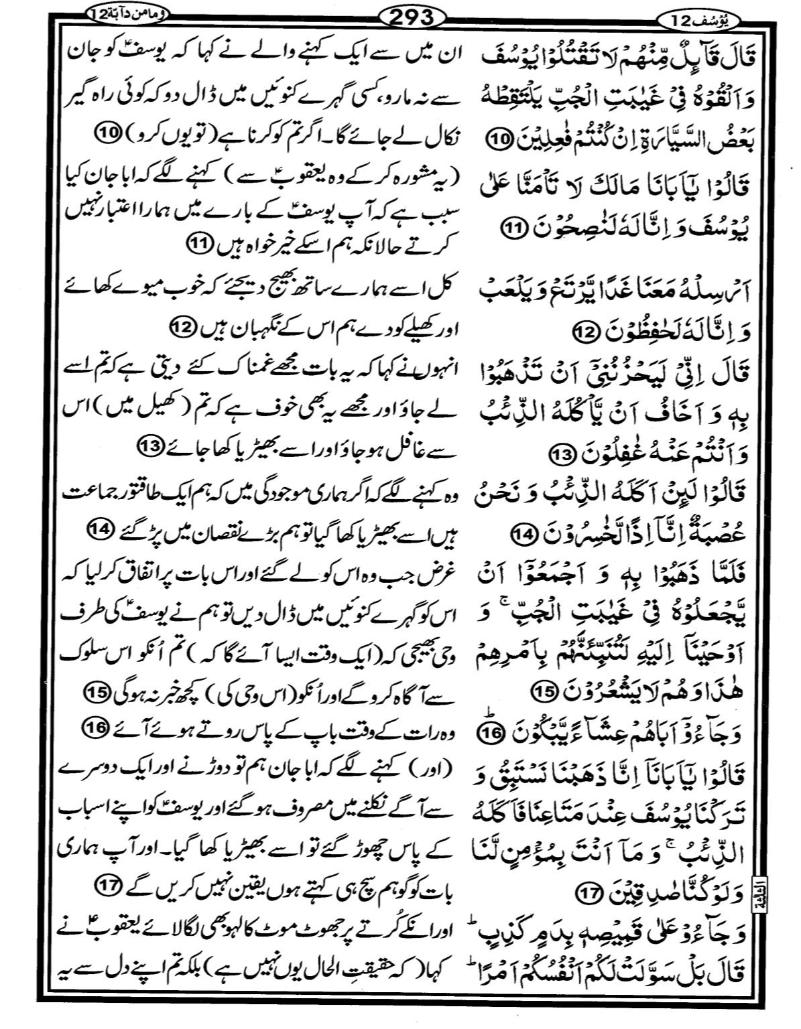 یُوْسُف 12
293
وما من دآبۃ 12
قَالَ قَآئِلٌ مِّنْهُمْ لَا تَقْتُلُوْا یُوْسُفَ
وَاَلْقُوْهُ فِیْ غَیٰبَتِ الْجُبِّ یَلْتَقِطْهُ
بَعْضُ السَّیَّارَةِ اِنْ كُنْتُمْ فٰعِلِیْنَ 10
قَالُوْا یٰۤاَبَانَا مَالَكَ لَا تَاْمَنَّا عَلٰی
یُوْسُفَ وَ اِنَّا لَهٗ لَنٰصِحُوْنَ 11
اَرْسِلْهُ مَعَنَا غَدًا یَّرْتَعْ وَ یَلْعَبْ
وَ اِنَّا لَهٗ لَحٰفِظُوْنَ 12
قَالَ اِنِّیْ لَیَحْزُنُنِیْۤ اَنْ تَذْهَبُوْا
بِهٖ وَ اَخَافُ اَنْ یَّاْكُلَهُ الذِّئْبُ
وَ اَنْتُمْ عَنْهُ غٰفِلُوْنَ 13
قَالُوْا لَىِٕنْ اَكَلَهُ الذِّئْبُ وَ نَحْنُ
عُصْبَةٌ اِنَّاۤ اِذًا لَّخٰسِرُوْنَ 14
فَلَمَّا ذَهَبُوْا بِهٖ وَ اَجْمَعُوْۤا اَنْ
یَّجْعَلُوْهُ فِیْ غَیٰبَتِ الْجُبِّ ۚ وَ
اَوْحَیْنَاۤ اِلَیْهِ لَتُنَبِّئَنَّهُمْ بِاَمْرِهِمْ
هٰذَا وَ هُمْ لَا یَشْعُرُوْنَ 15
وَ جَآءُوْۤ اَبَاهُمْ عِشَآءً یَّبْكُوْنَ ؕ 16
قَالُوْا یٰۤاَبَانَاۤ اِنَّا ذَهَبْنَا نَسْتَبِقُ وَ
تَرَكْنَا یُوْسُفَ عِنْدَ مَتَاعِنَا فَاَكَلَهُ
الذِّئْبُ ۚ وَ مَاۤ اَنْتَ بِمُؤْمِنٍ لَّنَا
وَ لَوْ كُنَّا صٰدِقِیْنَ 17
وَ جَآءُوْ عَلٰی قَمِیْصِهٖ بِدَمٍ كَذِبٍ ؕ
قَالَ بَلْ سَوَّلَتْ لَكُمْ اَنْفُسُكُمْ اَمْرًا ؕ
ان میں سے ایک کہنے والے نے کہا کہ یوسفؑ کو جان
سے نہ مارو، کسی گہرے کنوئیں میں ڈال دو کہ کوئی راہ گیر
نکال لے جائے گا۔ اگر تم کو کرنا ہے (تو یوں کرو) 10
(یہ مشورہ کر کے وہ یعقوبؑ سے) کہنے لگے کہ ابا جان کیا
سبب ہے کہ آپ یوسفؑ کے بارے میں ہمارا اعتبار نہیں
کرتے حالانکہ ہم اسکے خیر خواہ ہیں 11
کل اسے ہمارے ساتھ بھیج دیجئے کہ خوب میوے کھائے
اور کھیلے کودے ہم اس کے نگہبان ہیں 12
انہوں نے کہا کہ یہ بات مجھے غمناک کئے دیتی ہے کہ تم اسے
لے جاؤ اور مجھے یہ بھی خوف ہے کہ تم (کھیل میں) اس
سے غافل ہو جاؤ اور اسے بھیڑیا کھا جائے 13
وہ کہنے لگے کہ اگر ہماری موجودگی میں کہ ہم ایک طاقتور جماعت
ہیں اسے بھیڑیا کھا گیا تو ہم بڑے نقصان میں پڑ گئے 14
غرض جب وہ اس کو لے گئے اور اس بات پر اتفاق کر لیا کہ
اس کو گہرے کنوئیں میں ڈال دیں تو ہم نے یوسفؑ کی طرف
وحی بھیجی کہ (ایک وقت ایسا آئے گا کہ) تم اُنکو اس سلوک
سے آگاہ کرو گے اور اُنکو (اس وحی کی) کچھ خبر نہ ہوگی 15
وہ رات کے وقت باپ کے پاس روتے ہوئے آئے 16
(اور) کہنے لگے کہ ابا جان ہم تو دوڑنے اور ایک دوسرے
سے آگے نکلنے میں مصروف ہو گئے اور یوسفؑ کو اپنے اسباب
کے پاس چھوڑ گئے تو اسے بھیڑیا کھا گیا۔ اور آپ ہماری
بات کو گو ہم سچ ہی کہتے ہوں یقین نہیں کریں گے 17
اور انکے کُرتے پر جھوٹ موٹ کا لہو بھی لگا لائے یعقوبؑ نے
کہا (کہ حقیقتِ الحال یوں نہیں ہے) بلکہ تم اپنے دل سے یہ
الثلثة